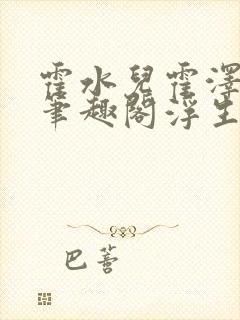 霍水兒霍澤
筆趣閣浮生
巴薯